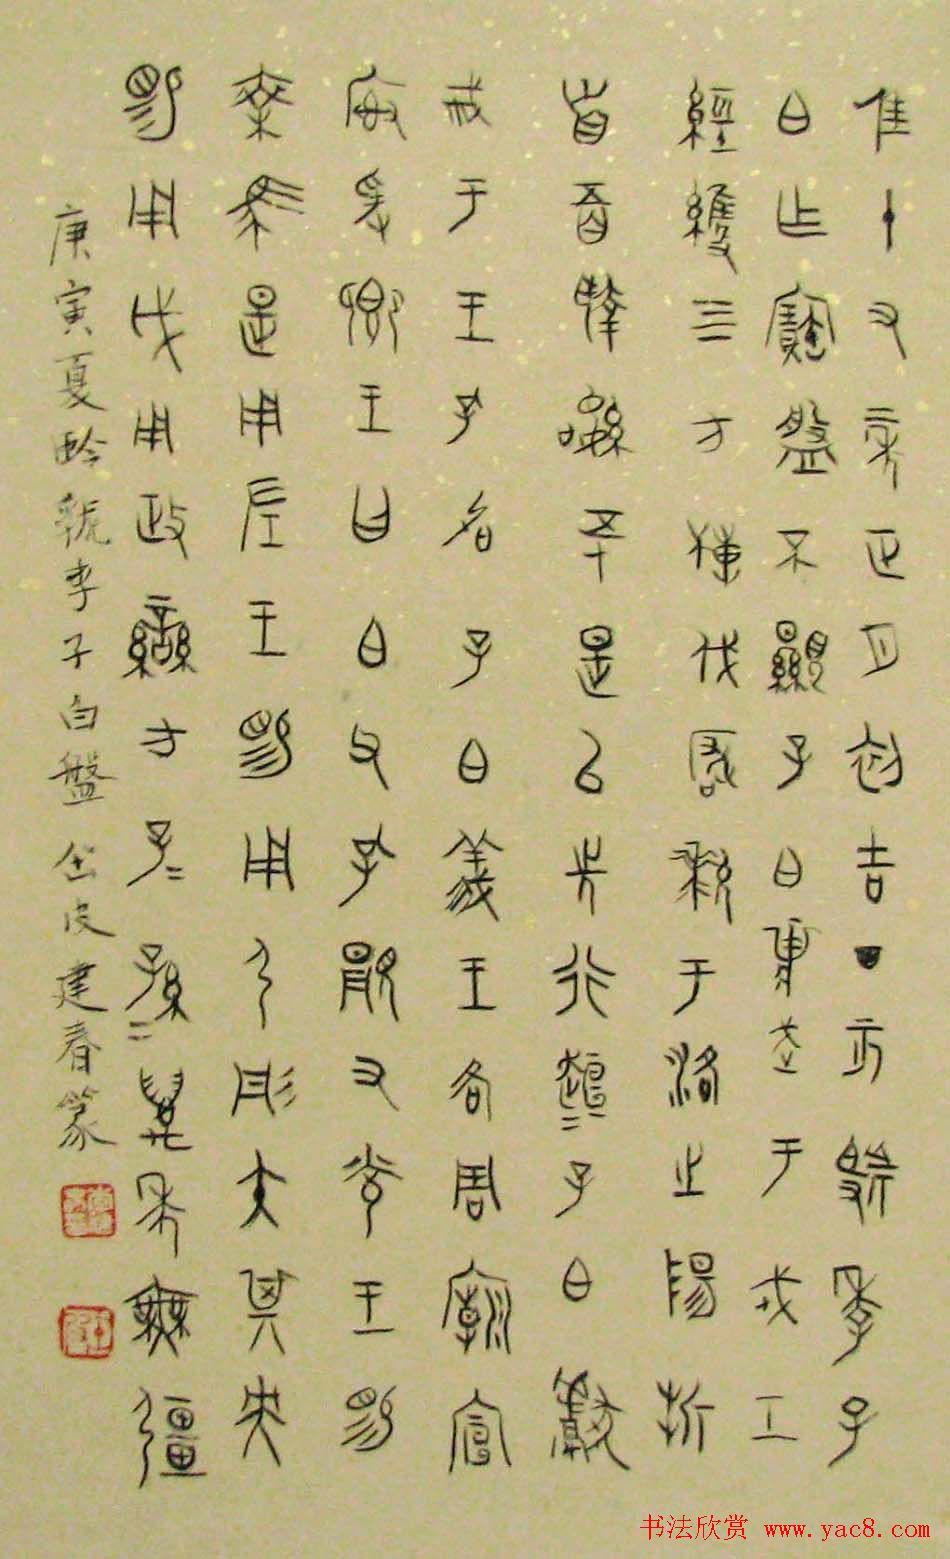 隹十又二年正月初吉丁亥虢季子
白乍寶盤不顯子白壯武于戎工
經維四方搏伐玁狁于洛之陽折
首五百執訊五十是以先行趄=子白獻
馘于王孔加子白義王各周廟宣
廚爰鄉王曰白父孔顯又光王賜
乘馬是用左王賜用弓彤矢其央
賜用戉用政蠻方子=孫=萬年無疆
庚寅夏 虢季子白盤 皮建春篆
书法欣赏 www.yac8.com